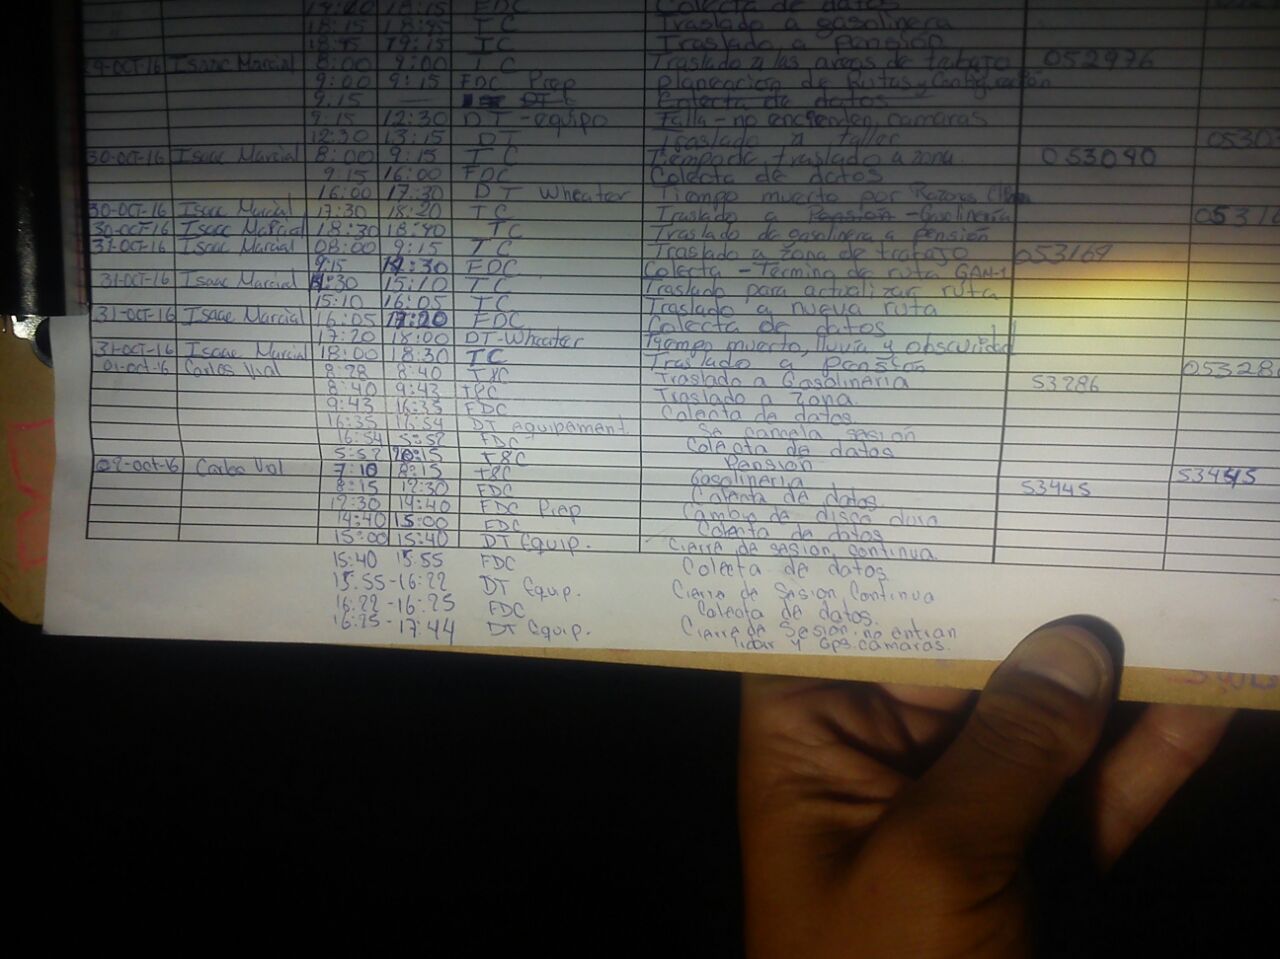 18:15 EDC Colecta de datos
18:15 18:45 TC Traslado a gasolinera
18:45 19:15 TC Traslado a Pensión
29-OCT-16 Isaac Marcial 8:00 9:00 TC Traslado a las areas de trabajo 052976
9:00 9:15 FDC Prep Planeacion de Rutas y Configuración
9:15 — DT Colecta de datos
9:15 12:30 DT - equipo Falla - no encienden camaras
12:30 13:15 DT Traslado a taller
30-OCT-16 Isaac Marcial 8:00 9:15 TC traslado a zona 053040
9:15 16:00 FDC Colecta de datos
16:00 17:30 DT Wheater Tiempo muerto por Razones
30-OCT-16 Isaac Marcial 17:30 18:20 TC Traslado a Pensión - Gasolineria 0531
30-OCT-16 Isaac Marcial 18:30 18:40 TC Traslado de gasolinera a pensión
31-OCT-16 Isaac Marcial 08:00 9:15 TC Traslado a zona de trabajo 053169
9:15 14:30 FDC Colecta - Termino de ruta GAM-1
31-OCT-16 Isaac Marcial 14:30 15:10 TC Traslado para actualizar ruta
15:10 16:05 TC Traslado a nueva ruta
31-OCT-16 Isaac Marcial 16:05 17:20 FDC Colecta de datos
17:20 18:00 DT-Wheater Tiempo muerto, lluvia y obscuridad
31-OCT-16 Isaac Marcial 18:00 18:30 TC Traslado a Pensión 05328
01-oct-16 Carlos Vial 8:28 8:40 T&C Traslado a Gasolineria 53286
8:40 9:43 T&C Traslado a Zona
9:43 16:35 FDC Colecta de datos
16:35 16:54 DT equipement Se camela sesión
16:54 5:57 FDC Colecta de datos
5:57 T&C Pensión
02-oct-16 Carlos Vial 7:10 8:15 T&C Gasolineria 53445
8:15 12:30 FDC Colecta de datos 53445
12:30 14:40 FDC Prep Cambio de disco duro
14:40 15:00 FDC Colecta de datos
15:00 15:40 DT Equip. Cierre de sesion, continua.
15:40 15:55 FDC Colecta de datos
15:55-16:22 DT Equip. Cierre de Sesion, Continua
16:22-16:25 FDC Colecta de datos.
16:25-17:44 DT Equip. Cierre de Sesion. no entran
lidar y Gps. camaras.